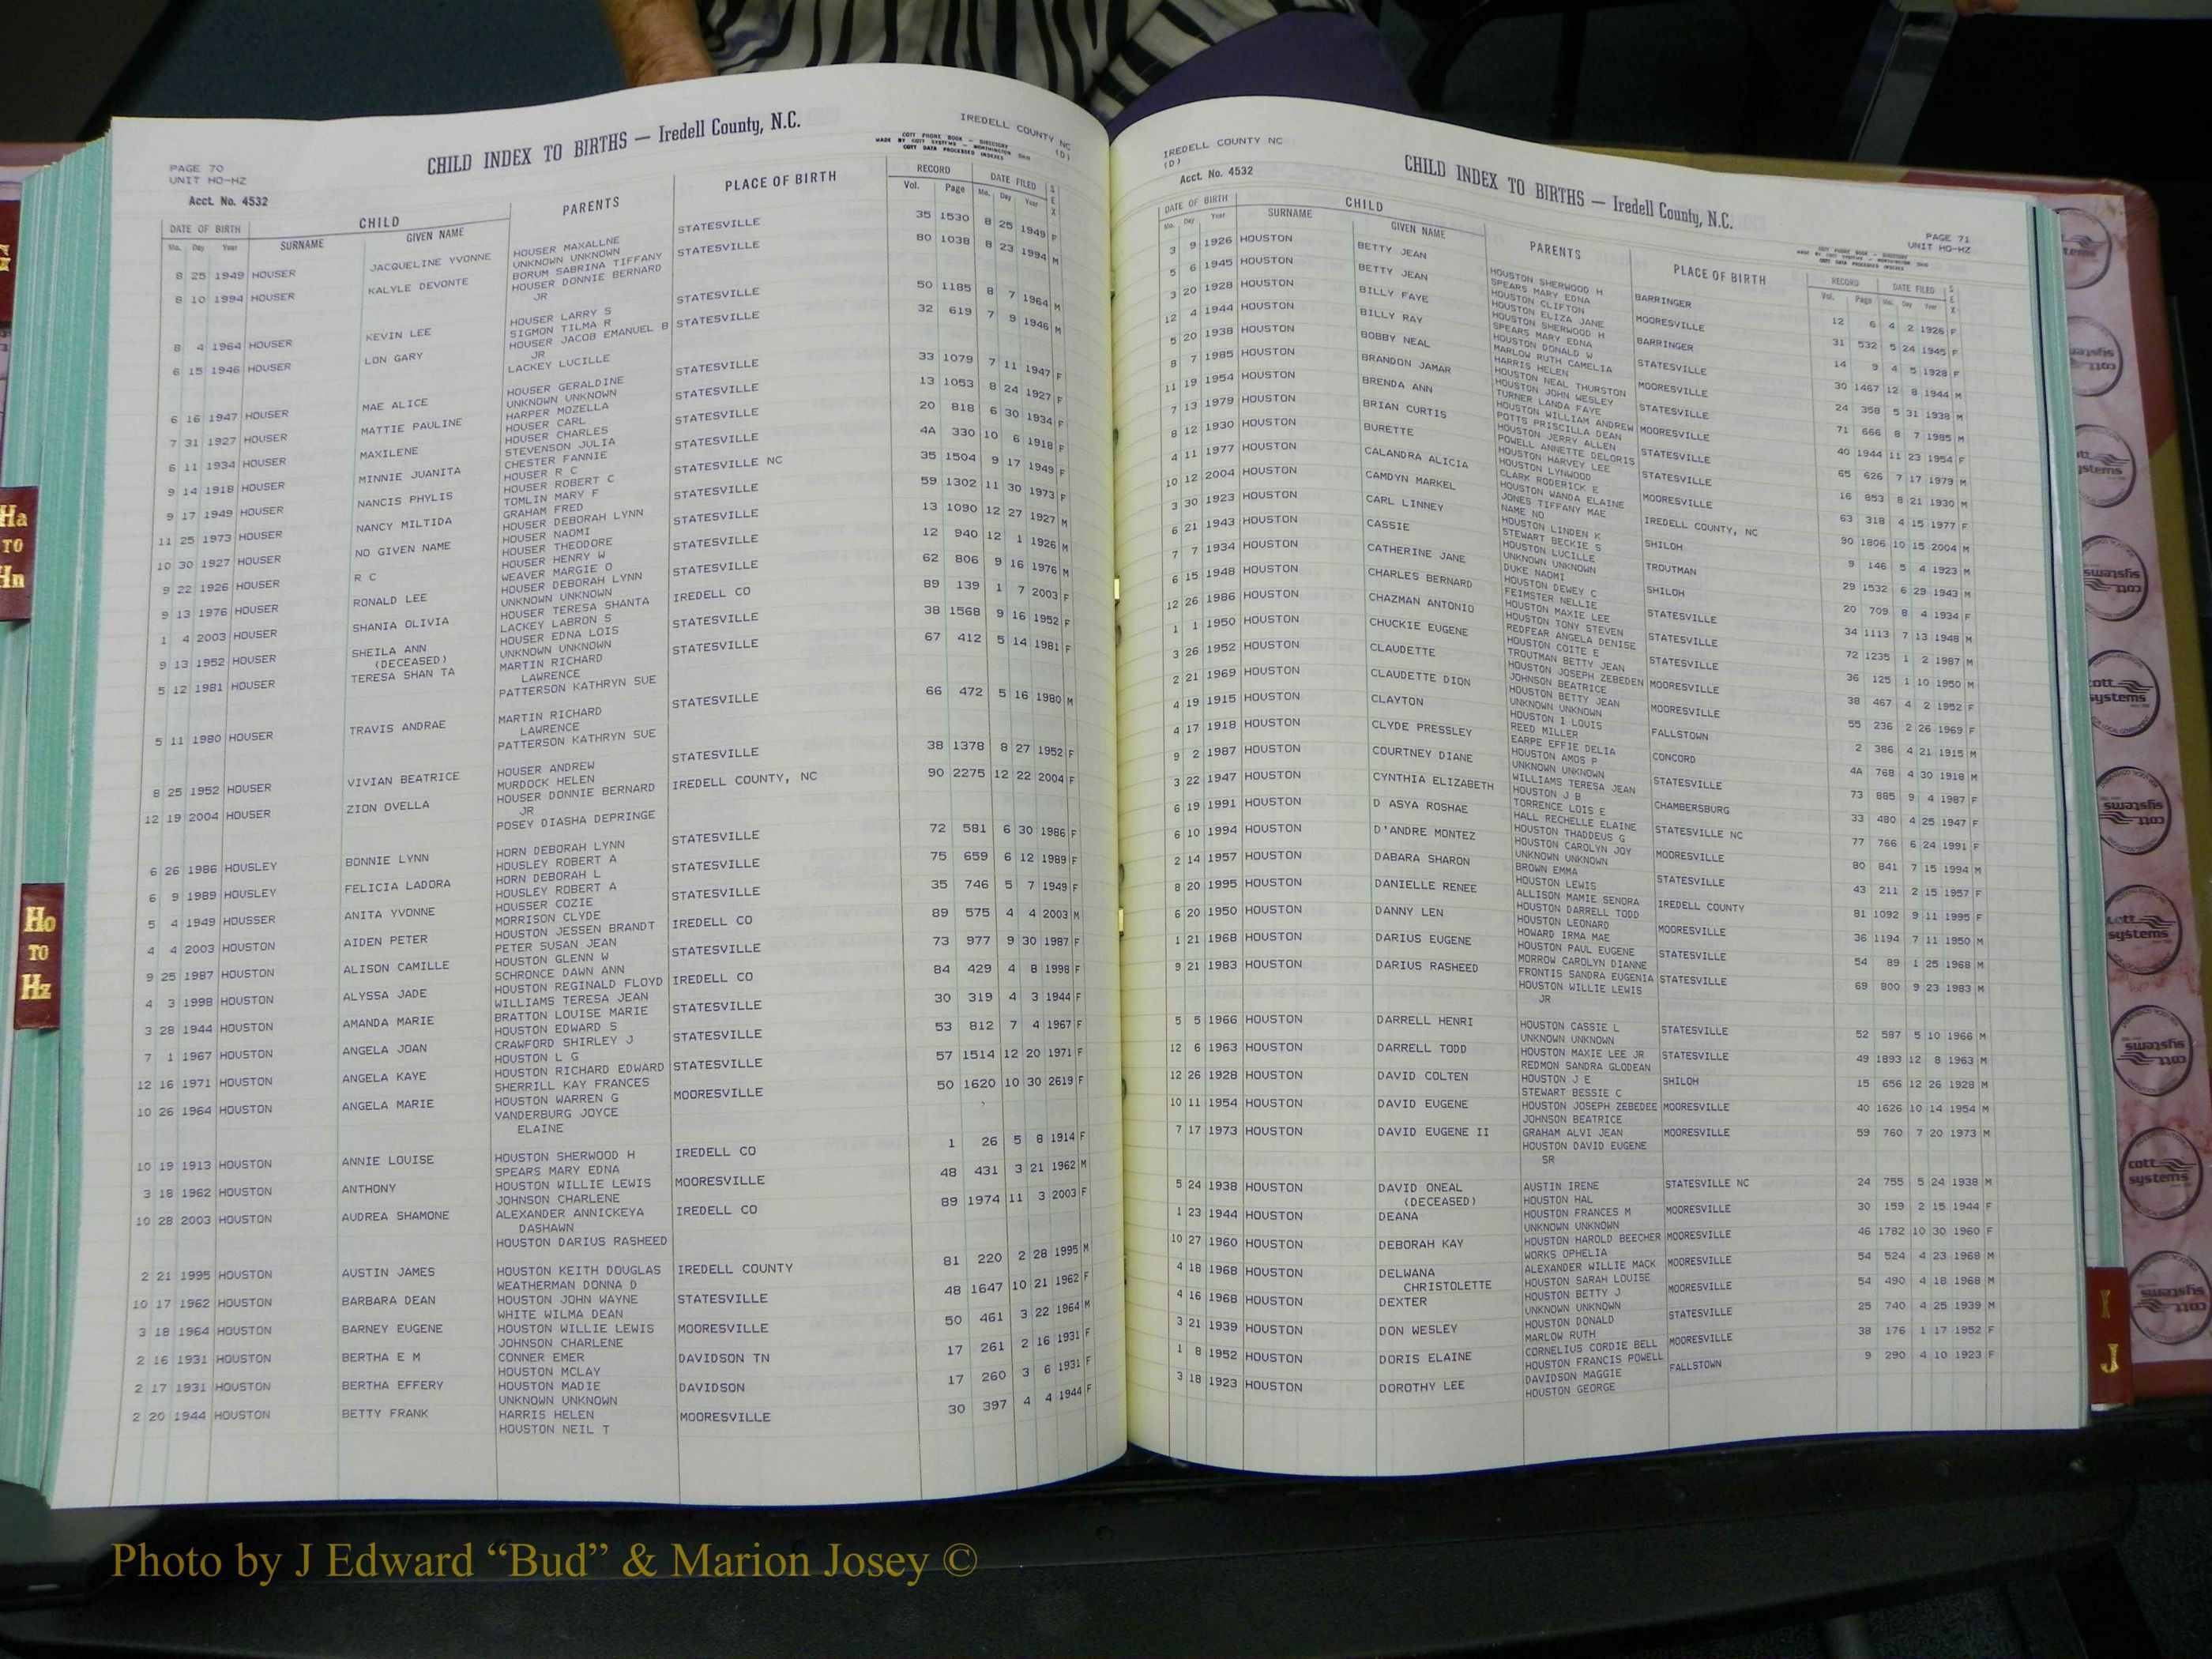 IREDELL COUNTY NC
(D)
CHILD INDEX TO BIRTHS — Iredell County, N.C.
COTT PHONE BOOK - DIRECTORY
MADE BY COTT SYSTEMS - WORTHINGTON OHIO
COTT DATA PROCESSED INDEXES
PAGE 70
UNIT HO-HZ
Acct. No. 4532
DATE OF BIRTH CHILD PARENTS PLACE OF BIRTH RECORD DATE FILED SEX
Mo. Day Year SURNAME GIVEN NAME Vol. Page Mo. Day Year
8 25 1949 HOUSER JACQUELINE YVONNE HOUSER MAXALLNE STATESVILLE 35 1530 8 25 1949 F
UNKNOWN UNKNOWN
8 10 1994 HOUSER KALYLE DEVONTE BORUM SABRINA TIFFANY STATESVILLE 80 1038 8 23 1994 M
HOUSER DONNIE BERNARD
JR
8 4 1964 HOUSER KEVIN LEE HOUSER LARRY S STATESVILLE 50 1185 8 7 1964 M
SIGMON TILMA R
6 15 1946 HOUSER LON GARY HOUSER JACOB EMANUEL B STATESVILLE 32 619 7 9 1946 M
JR
LACKEY LUCILLE
6 16 1947 HOUSER MAE ALICE HOUSER GERALDINE STATESVILLE 33 1079 7 11 1947 F
UNKNOWN UNKNOWN
7 31 1927 HOUSER MATTIE PAULINE HARPER MOZELLA STATESVILLE 13 1053 8 24 1927 F
HOUSER CARL
6 11 1934 HOUSER MAXILENE HOUSER CHARLES STATESVILLE 20 818 6 30 1934 F
STEVENSON JULIA
9 14 1918 HOUSER MINNIE JUANITA CHESTER FANNIE STATESVILLE 4A 330 10 6 1918 F
HOUSER R C
9 17 1949 HOUSER NANCIS PHYLIS HOUSER ROBERT C STATESVILLE NC 35 1504 9 17 1949 F
TOMLIN MARY F
11 25 1973 HOUSER NANCY MILTIDA GRAHAM FRED STATESVILLE 59 1302 11 30 1973 F
HOUSER DEBORAH LYNN
10 30 1927 HOUSER NO GIVEN NAME HOUSER NAOMI STATESVILLE 13 1090 12 27 1927 M
HOUSER THEODORE
9 22 1926 HOUSER R C HOUSER HENRY W STATESVILLE 12 940 12 1 1926 M
WEAVER MARGIE O
9 13 1976 HOUSER RONALD LEE HOUSER DEBORAH LYNN STATESVILLE 62 806 9 16 1976 M
UNKNOWN UNKNOWN
1 4 2003 HOUSER SHANIA OLIVIA HOUSER TERESA SHANTA IREDELL CO 89 139 1 7 2003 F
LACKEY LABRON S
9 13 1952 HOUSER SHEILA ANN HOUSER EDNA LOIS STATESVILLE 38 1568 9 16 1952 F
(DECEASED) UNKNOWN UNKNOWN
5 12 1981 HOUSER TERESA SHAN TA MARTIN RICHARD STATESVILLE 67 412 5 14 1981 F
LAWRENCE
PATTERSON KATHRYN SUE
5 11 1980 HOUSER TRAVIS ANDRAE MARTIN RICHARD STATESVILLE 66 472 5 16 1980 M
LAWRENCE
PATTERSON KATHRYN SUE
8 25 1952 HOUSER VIVIAN BEATRICE HOUSER ANDREW STATESVILLE 38 1378 8 27 1952 F
MURDOCK HELEN
12 19 2004 HOUSER ZION OVELLA HOUSER DONNIE BERNARD IREDELL COUNTY, NC 90 2275 12 22 2004 F
JR
POSEY DIASHA DEPRINGE
6 26 1986 HOUSLEY BONNIE LYNN HORN DEBORAH LYNN STATESVILLE 72 581 6 30 1986 F
HOUSLEY ROBERT A
6 9 1989 HOUSLEY FELICIA LADORA HORN DEBORAH L STATESVILLE 75 659 6 12 1989 F
HOUSLEY ROBERT A
5 4 1949 HOUSSER ANITA YVONNE HOUSSER COZIE STATESVILLE 35 746 5 7 1949 F
MORRISON CLYDE
4 4 2003 HOUSTON AIDEN PETER HOUSTON JESSEN BRANDT IREDELL CO 89 575 4 4 2003 M
PETER SUSAN JEAN
9 25 1987 HOUSTON ALISON CAMILLE HOUSTON GLENN W STATESVILLE 73 977 9 30 1987 F
SCHRONCE DAWN ANN
4 3 1998 HOUSTON ALYSSA JADE HOUSTON REGINALD FLOYD IREDELL CO 84 429 4 8 1998 F
WILLIAMS TERESA JEAN
3 28 1944 HOUSTON AMANDA MARIE BRATTON LOUISE MARIE STATESVILLE 30 319 4 3 1944 F
HOUSTON EDWARD S
7 1 1967 HOUSTON ANGELA JOAN CRAWFORD SHIRLEY J STATESVILLE 53 812 7 4 1967 F
HOUSTON L G
12 16 1971 HOUSTON ANGELA KAYE HOUSTON RICHARD EDWARD STATESVILLE 57 1514 12 20 1971 F
SHERRILL KAY FRANCES
10 26 1964 HOUSTON ANGELA MARIE HOUSTON WARREN G MOORESVILLE 50 1620 10 30 2619 F
VANDERBURG JOYCE
ELAINE
10 19 1913 HOUSTON ANNIE LOUISE HOUSTON SHERWOOD H IREDELL CO 1 26 5 8 1914 F
SPEARS MARY EDNA
3 18 1962 HOUSTON ANTHONY HOUSTON WILLIE LEWIS MOORESVILLE 48 431 3 21 1962 M
JOHNSON CHARLENE
10 28 2003 HOUSTON AUDREA SHAMONE ALEXANDER ANNICKEYA IREDELL CO 89 1974 11 3 2003 F
DASHAWN
HOUSTON DARIUS RASHEED
2 21 1995 HOUSTON AUSTIN JAMES HOUSTON KEITH DOUGLAS IREDELL COUNTY 81 220 2 28 1995 M
WEATHERMAN DONNA D
10 17 1962 HOUSTON BARBARA DEAN HOUSTON JOHN WAYNE STATESVILLE 48 1647 10 21 1962 F
WHITE WILMA DEAN
3 18 1964 HOUSTON BARNEY EUGENE HOUSTON WILLIE LEWIS MOORESVILLE 50 461 3 22 1964 M
JOHNSON CHARLENE
2 16 1931 HOUSTON BERTHA E M CONNER EMER DAVIDSON TN 17 261 2 16 1931 F
HOUSTON MCLAY
2 17 1931 HOUSTON BERTHA EFFERY HOUSTON MADIE DAVIDSON 17 260 3 6 1931 F
UNKNOWN UNKNOWN
2 20 1944 HOUSTON BETTY FRANK HARRIS HELEN MOORESVILLE 30 397 4 4 1944 F
HOUSTON NEIL T
IREDELL COUNTY NC
(D)
Acct. No. 4532
CHILD INDEX TO BIRTHS — Iredell County, N.C.
PAGE 71
UNIT HO-HZ
COTT PHONE BOOK - DIRECTORY
MADE BY COTT SYSTEMS - WORTHINGTON OHIO
COTT DATA PROCESSED INDEXES
DATE OF BIRTH CHILD PARENTS PLACE OF BIRTH RECORD DATE FILED SEX
Mo. Day Year SURNAME GIVEN NAME Vol. Page Mo. Day Year
3 9 1926 HOUSTON BETTY JEAN HOUSTON SHERWOOD H BARRINGER 12 6 4 2 1926 F
SPEARS MARY EDNA
5 6 1945 HOUSTON BETTY JEAN HOUSTON CLIFTON MOORESVILLE 31 532 5 24 1945 F
HOUSTON ELIZA JANE
3 20 1928 HOUSTON BILLY FAYE HOUSTON SHERWOOD H BARRINGER 14 9 4 5 1928 F
SPEARS MARY EDNA
12 4 1944 HOUSTON BILLY RAY HOUSTON DONALD W STATESVILLE 30 1467 12 8 1944 M
MARLOW RUTH CAMELIA
5 20 1938 HOUSTON BOBBY NEAL HARRIS HELEN MOORESVILLE 24 358 5 31 1938 M
HOUSTON NEAL THURSTON
8 7 1985 HOUSTON BRANDON JAMAR HOUSTON JOHN WESLEY STATESVILLE 71 666 8 7 1985 M
TURNER LANDA FAYE
11 19 1954 HOUSTON BRENDA ANN HOUSTON WILLIAM ANDREW MOORESVILLE 40 1944 11 23 1954 F
POTTS PRISCILLA DEAN
7 13 1979 HOUSTON BRIAN CURTIS HOUSTON JERRY ALLEN STATESVILLE 65 626 7 17 1979 M
POWELL ANNETTE DELORIS
8 12 1930 HOUSTON BURETTE HOUSTON HARVEY LEE MOORESVILLE 16 853 8 21 1930 M
HOUSTON LYNWOOD
4 11 1977 HOUSTON CALANDRA ALICIA CLARK RODERICK E IREDELL COUNTY, NC 63 318 4 15 1977 F
HOUSTON WANDA ELAINE
10 12 2004 HOUSTON CAMDYN MARKEL JONES TIFFANY MAE SHILOH 90 1806 10 15 2004 M
NAME NO
3 30 1923 HOUSTON CARL LINNEY HOUSTON LINDEN K TROUTMAN 9 146 5 4 1923 M
STEWART BECKIE S
6 21 1943 HOUSTON CASSIE HOUSTON LUCILLE SHILOH 29 1532 6 29 1943 M
UNKNOWN UNKNOWN
7 7 1934 HOUSTON CATHERINE JANE DUKE NAOMI STATESVILLE 20 709 8 4 1934 F
HOUSTON DEWEY C
6 15 1948 HOUSTON CHARLES BERNARD FEIMSTER NELLIE STATESVILLE 34 1113 7 13 1948 M
HOUSTON MAXIE LEE
12 26 1986 HOUSTON CHAZMAN ANTONIO HOUSTON TONY STEVEN STATESVILLE 72 1235 1 2 1987 M
REDFEAR ANGELA DENISE
1 1 1950 HOUSTON CHUCKIE EUGENE HOUSTON COITE E MOORESVILLE 36 125 1 10 1950 M
TROUTMAN BETTY JEAN
3 26 1952 HOUSTON CLAUDETTE HOUSTON JOSEPH ZEBEDEN MOORESVILLE 38 467 4 2 1952 F
JOHNSON BEATRICE
2 21 1969 HOUSTON CLAUDETTE DION HOUSTON BETTY JEAN FALLSTOWN 55 236 2 26 1969 F
UNKNOWN UNKNOWN
4 19 1915 HOUSTON CLAYTON HOUSTON I LOUIS CONCORD 2 386 4 21 1915 M
REED MILLER
4 17 1918 HOUSTON CLYDE PRESSLEY EARPE EFFIE DELIA STATESVILLE 4A 768 4 30 1918 M
HOUSTON AMOS P
9 2 1987 HOUSTON COURTNEY DIANE UNKNOWN UNKNOWN CHAMBERSBURG 73 885 9 4 1987 F
WILLIAMS TERESA JEAN
3 22 1947 HOUSTON CYNTHIA ELIZABETH HOUSTON J B STATESVILLE NC 33 480 4 25 1947 F
TORRENCE LOIS E
6 19 1991 HOUSTON D ASYA ROSHAE HALL RECHELLE ELAINE MOORESVILLE 77 766 6 24 1991 F
HOUSTON THADDEUS G
6 10 1994 HOUSTON D'ANDRE MONTEZ HOUSTON CAROLYN JOY STATESVILLE 80 841 7 15 1994 M
UNKNOWN UNKNOWN
2 14 1957 HOUSTON DABARA SHARON BROWN EMMA IREDELL COUNTY 43 211 2 15 1957 F
HOUSTON LEWIS
8 20 1995 HOUSTON DANIELLE RENEE ALLISON MAMIE SENORA MOORESVILLE 81 1092 9 11 1995 F
HOUSTON DARRELL TODD
6 20 1950 HOUSTON DANNY LEN HOUSTON LEONARD 36 1194 7 11 1950 M
HOWARD IRMA MAE
1 21 1968 HOUSTON DARIUS EUGENE HOUSTON PAUL EUGENE STATESVILLE 54 89 1 25 1968 M
MORROW CAROLYN DIANNE
9 21 1983 HOUSTON DARIUS RASHEED FRONTIS SANDRA EUGENIA STATESVILLE 69 800 9 23 1983 M
HOUSTON WILLIE LEWIS
JR
5 5 1966 HOUSTON DARRELL HENRI HOUSTON CASSIE L STATESVILLE 52 587 5 10 1966 M
UNKNOWN UNKNOWN
12 6 1963 HOUSTON DARRELL TODD HOUSTON MAXIE LEE JR STATESVILLE 49 1893 12 8 1963 M
REDMON SANDRA GLODEAN
12 26 1928 HOUSTON DAVID COLTEN HOUSTON J E SHILOH 15 656 12 26 1928 M
STEWART BESSIE C
10 11 1954 HOUSTON DAVID EUGENE HOUSTON JOSEPH ZEBEDEE MOORESVILLE 40 1626 10 14 1954 M
JOHNSON BEATRICE
7 17 1973 HOUSTON DAVID EUGENE II GRAHAM ALVI JEAN MOORESVILLE 59 760 7 20 1973 M
HOUSTON DAVID EUGENE
SR
5 24 1938 HOUSTON DAVID ONEAL AUSTIN IRENE STATESVILLE NC 24 755 5 24 1938 M
(DECEASED) HOUSTON HAL
1 23 1944 HOUSTON DEANA HOUSTON FRANCES M MOORESVILLE 30 159 2 15 1944 F
UNKNOWN UNKNOWN
10 27 1960 HOUSTON DEBORAH KAY HOUSTON HAROLD BEECHER MOORESVILLE 46 1782 10 30 1960 F
WORKS OPHELIA
4 18 1968 HOUSTON DELWANA ALEXANDER WILLIE MACK MOORESVILLE 54 524 4 23 1968 M
CHRISTOLETTE HOUSTON SARAH LOUISE
4 16 1968 HOUSTON DEXTER HOUSTON BETTY J MOORESVILLE 54 490 4 18 1968 M
UNKNOWN UNKNOWN
3 21 1939 HOUSTON DON WESLEY HOUSTON DONALD STATESVILLE 25 740 4 25 1939 M
MARLOW RUTH
1 8 1952 HOUSTON DORIS ELAINE CORNELIUS CORDIE BELL MOORESVILLE 38 176 1 17 1952 F
HOUSTON FRANCIS POWELL
3 18 1923 HOUSTON DOROTHY LEE DAVIDSON MAGGIE FALLSTOWN 9 290 4 10 1923 F
HOUSTON GEORGE
Ha
TO
Hn
Ho
TO
Hz
I
J
cott
systems
Photo by J Edward “Bud” & Marion Josey ©